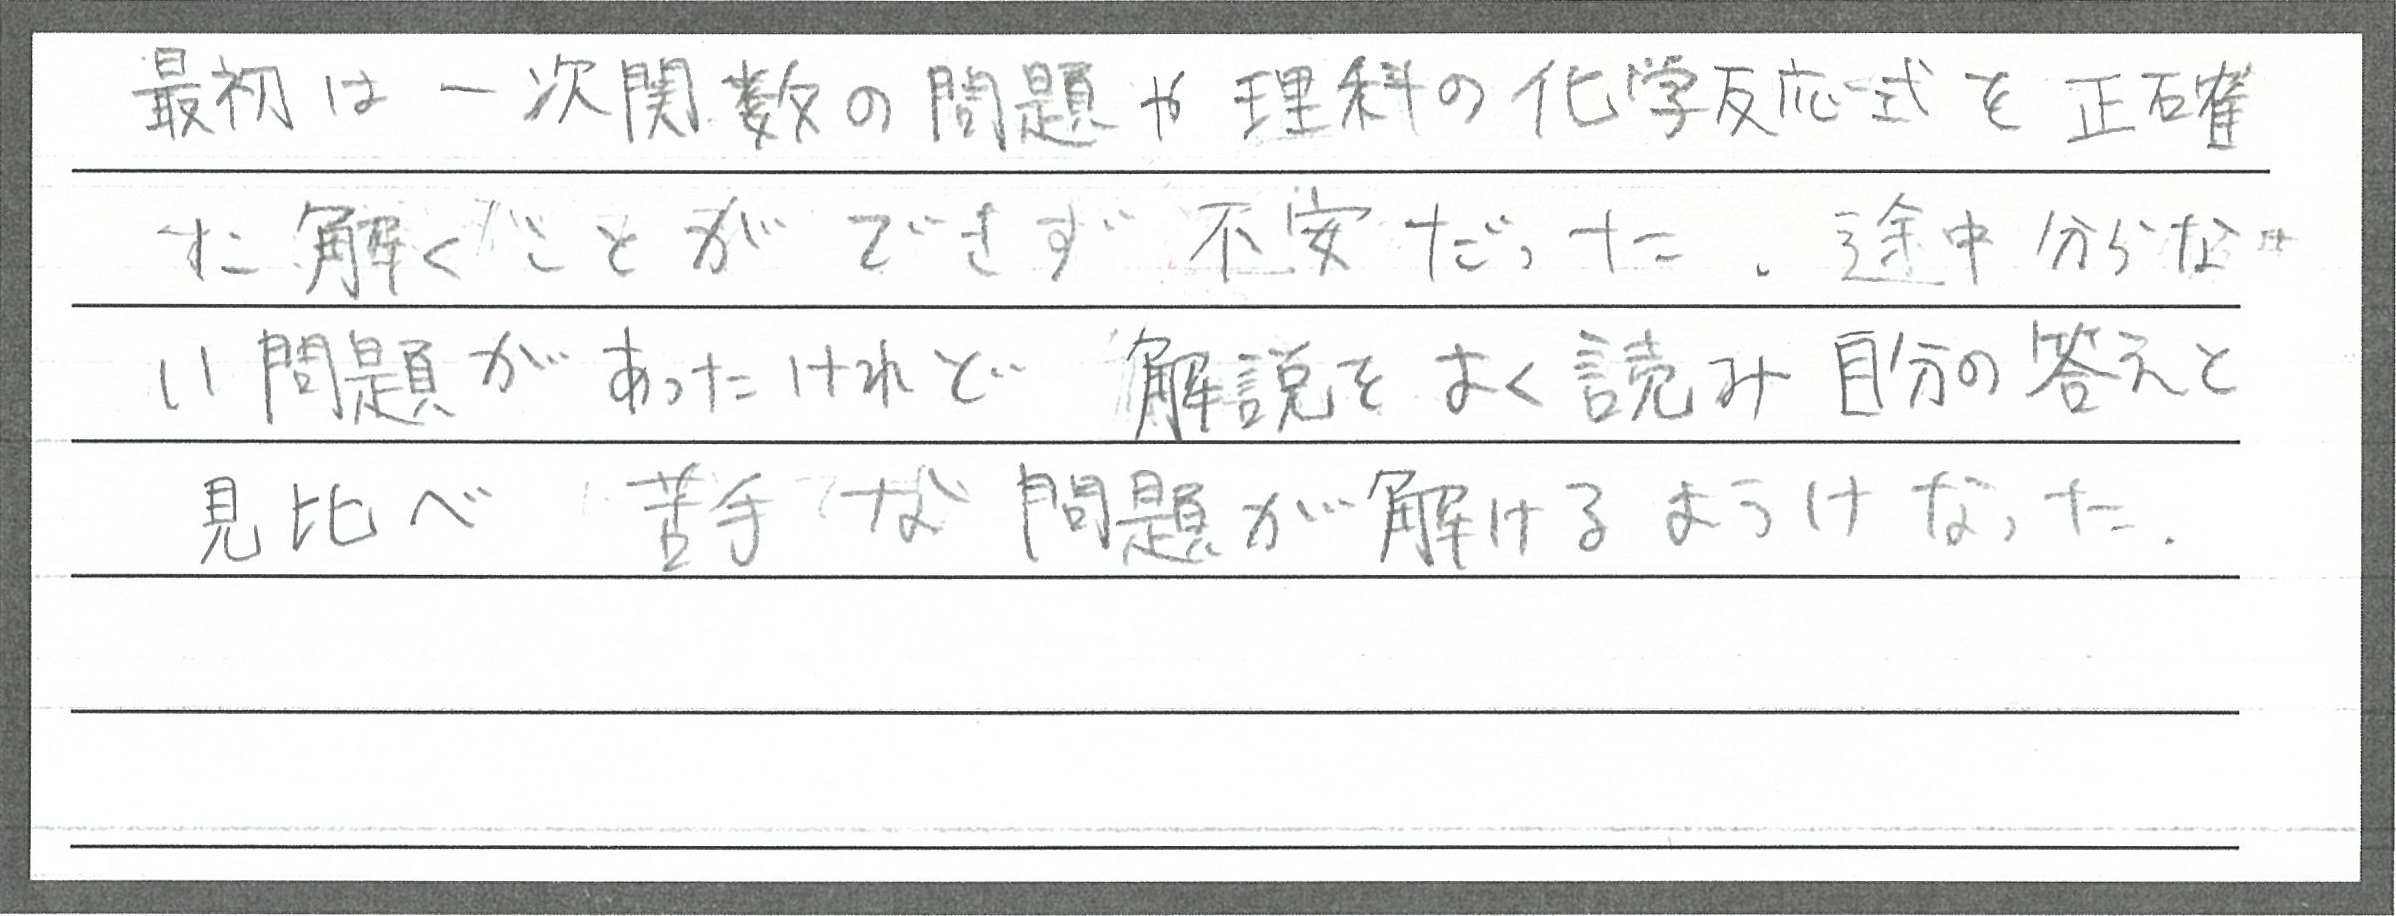 最初は一次関数の問題や理科の化学反応式を正確
に解くことができず不安だった。途中分からな
い問題があったけれど 解説をよく読み自分の答えと
見比べ 苦手な問題が解けるようになった。